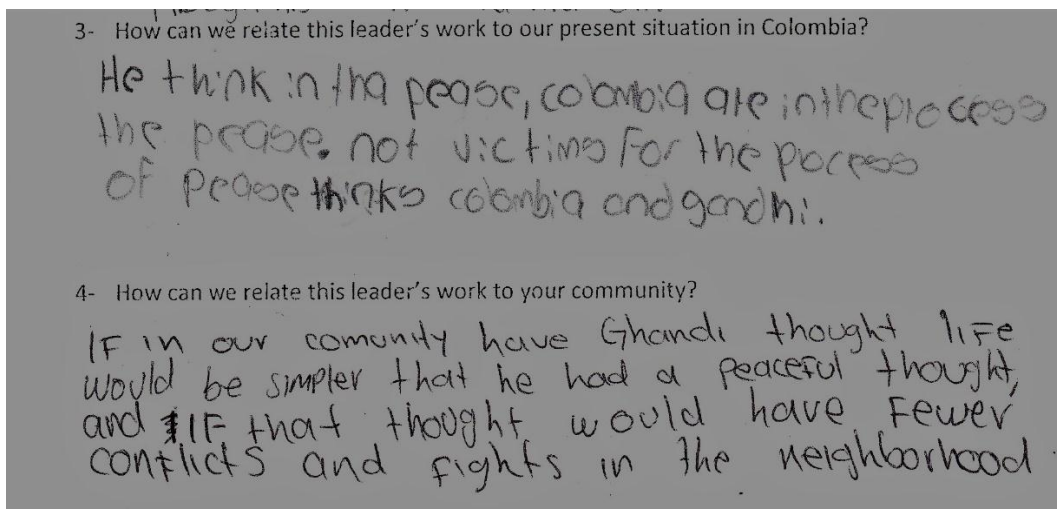 3- How can we relate this leader's work to our present situation in Colombia?
He think in tha pease, colombia are in the process
the pease. not victims for the procpess
of pease thinks colombia and gandhi.
4- How can we relate this leader's work to your community?
IF in our comunity have Ghandi thought life
would be simpler that he had a peaceful thought,
and IF that thought would have fewer
conflicts and fights in the neighborhood.